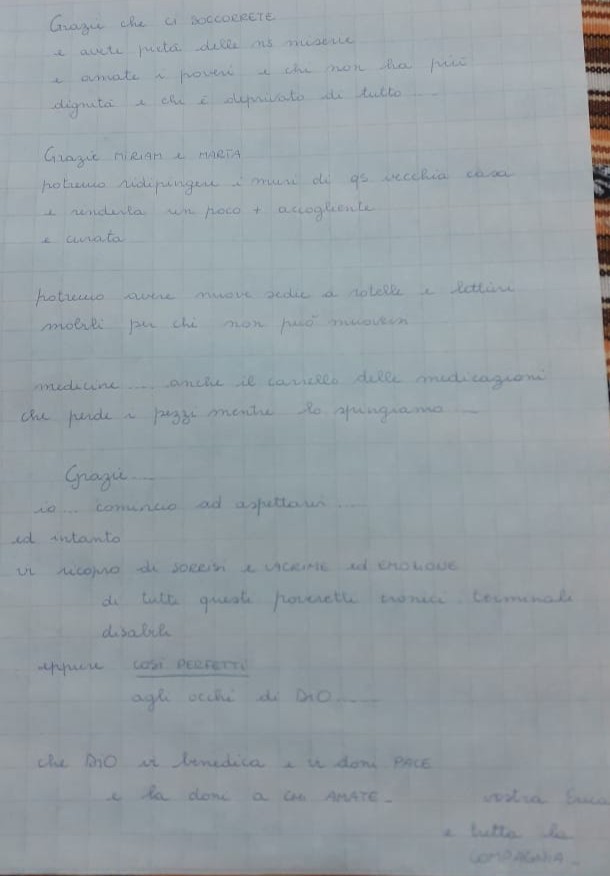 Grazie che ci SOCCORRETE
e avete pietà delle ns miserie
e amate i poveri e chi non ha più
dignità e chi è deprivato di tutto ....
Grazie MIRIAM e MARTA
potremo ridipingere i muri di qs vecchia casa
e renderla un poco + accogliente
e curata
potremo avere nuove sedie a rotelle e lettini
mobili per chi non può muoversi
medicine .... anche il carrello delle medicazioni
che perde i pezzi mentre lo spingiamo ...
Grazie ....
io ... comincio ad aspettarvi ....
ed intanto
vi ricopro di SORRISI e LACRIME ed EMOZIONE
di tutti questi poveretti cronici terminali
disabili
eppure COSÌ PERFETTI
agli occhi di DIO ....
che DIO vi benedica e vi doni PACE
e la doni a CHI AMATE.
vostra
e tutta la
COMPAGNIA.